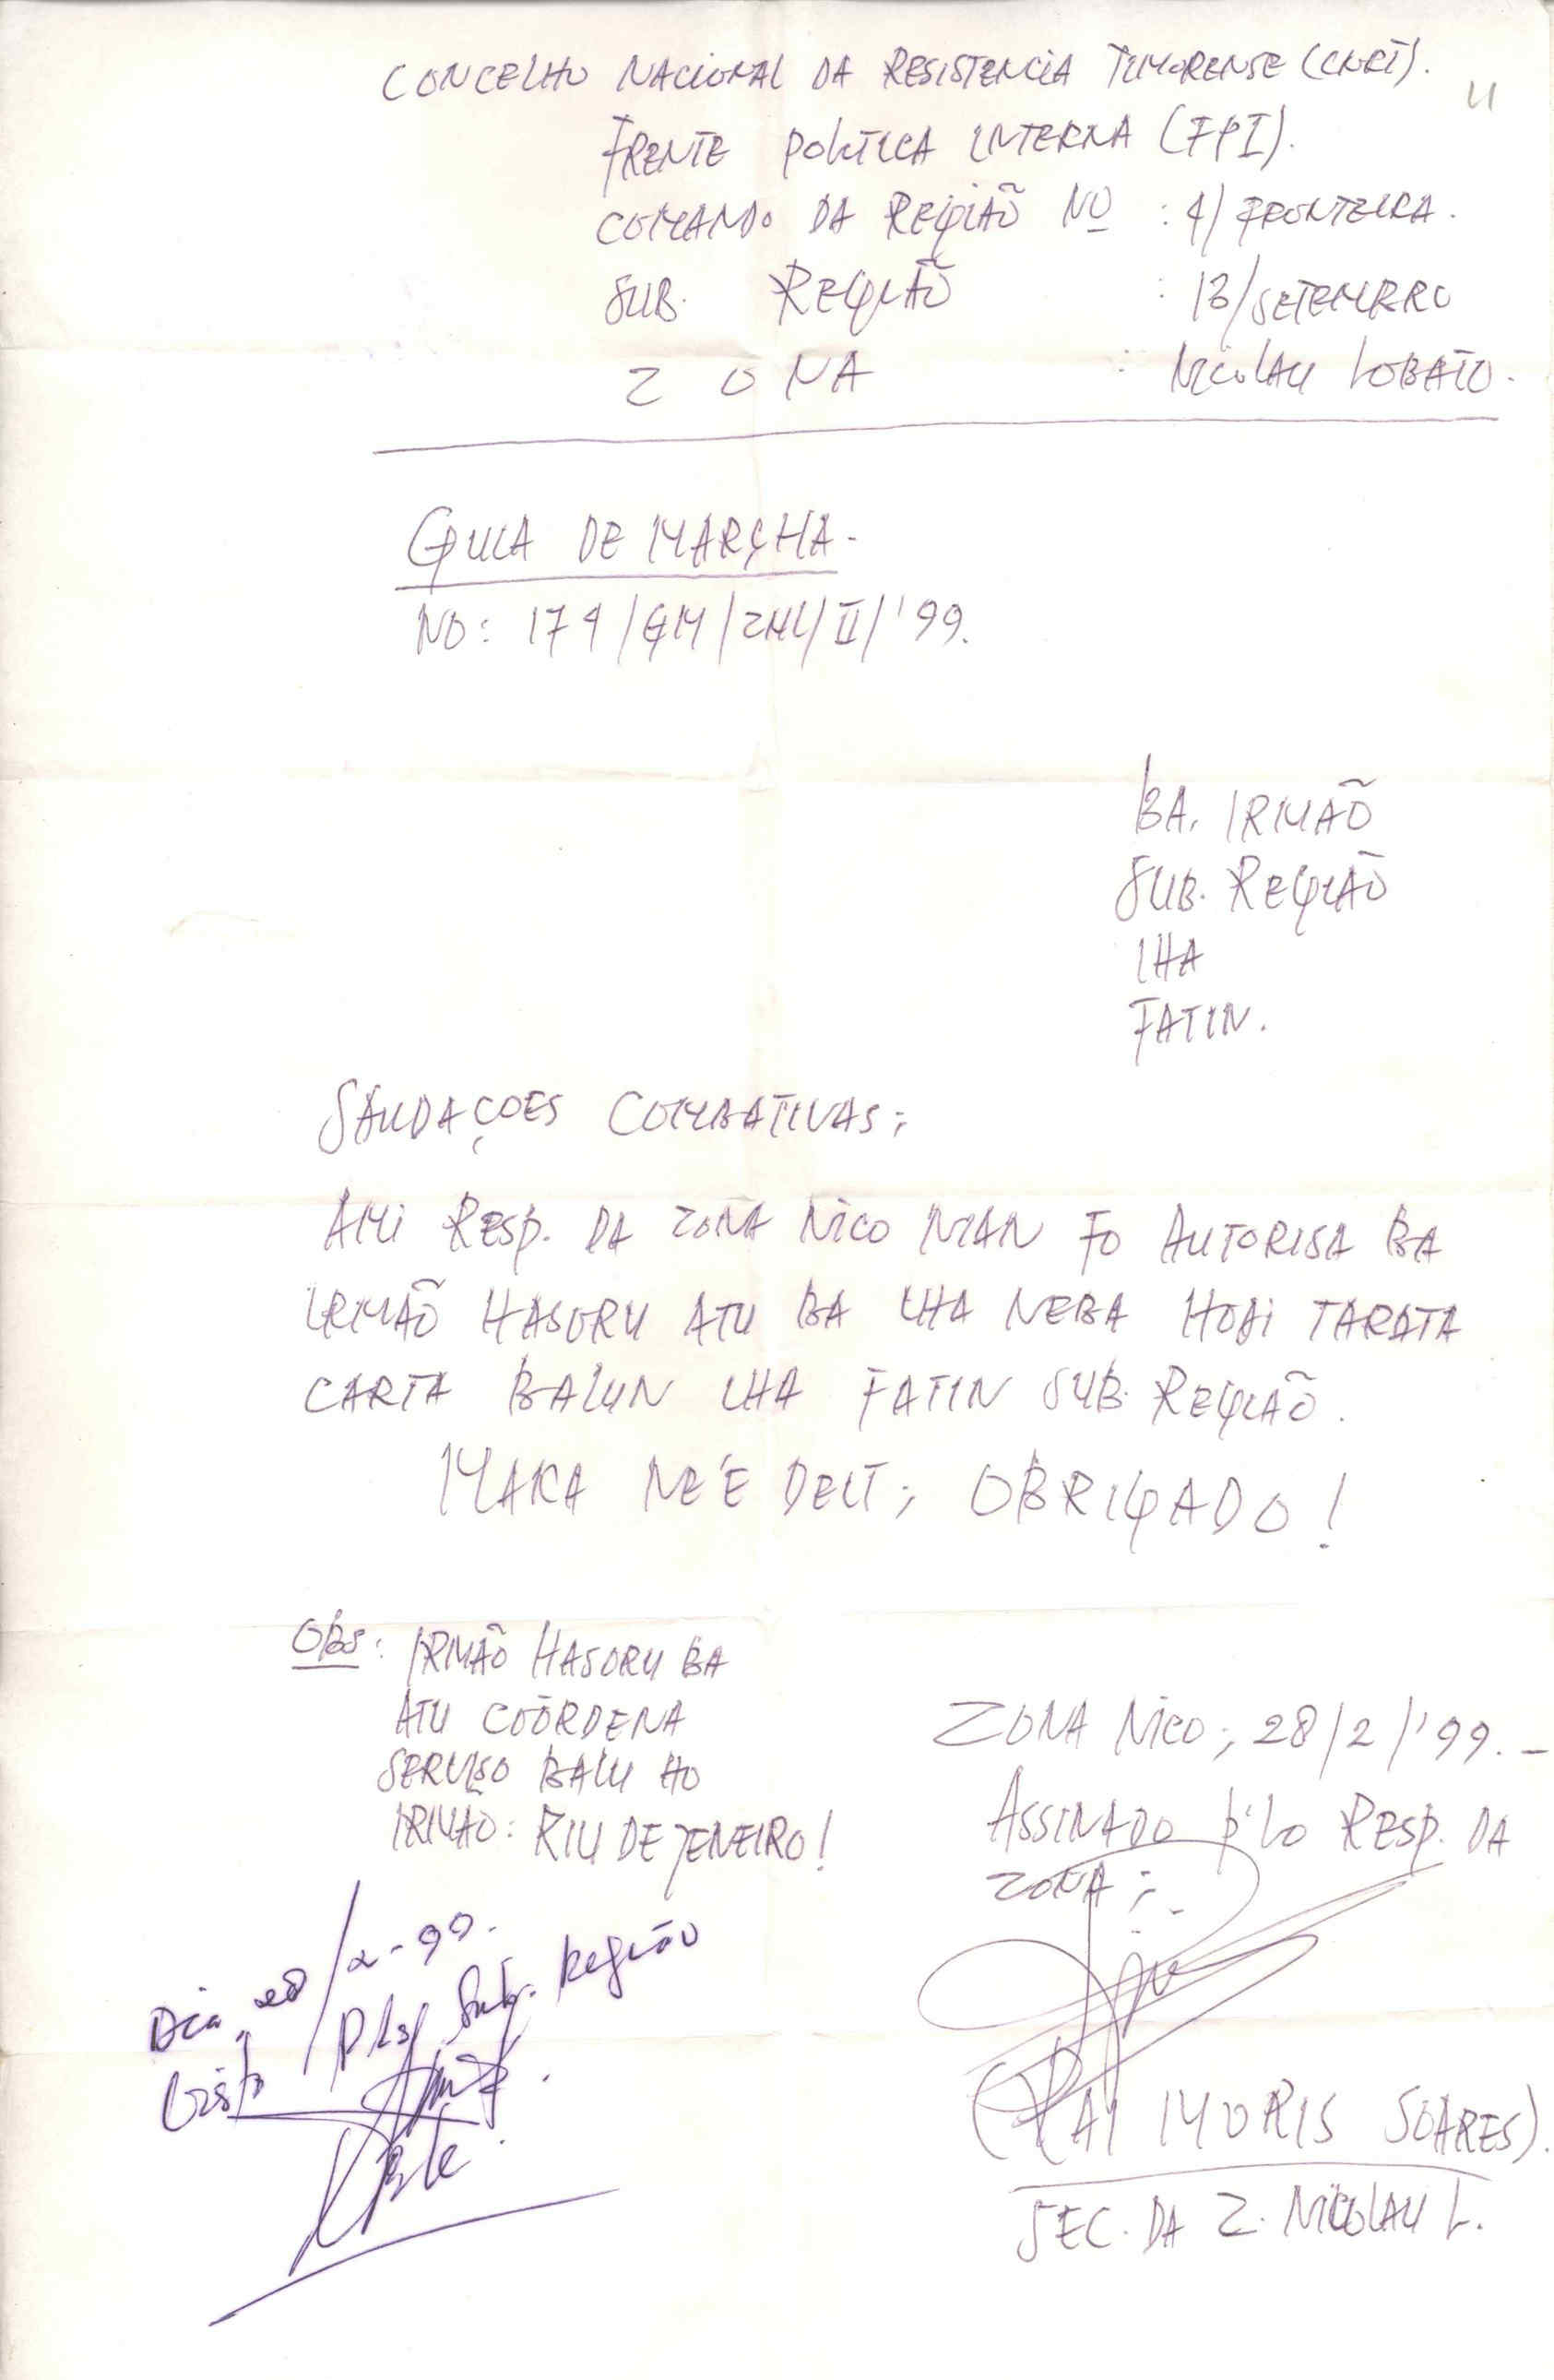 CONCELHO NACIONAL DA RESISTENCIA TIMORENSE (CNRT).
FRENTE POLITICA INTERNA (FPI).
COMANDO DA REGIÃO NO : 4/ FRONTEIRA.
SUB. REGIÃO : 13/SETEMBRO
ZONA : NICOLAU LOBATO.
GUIA DE MARÇHA.
NO: 174/GM/ZNL/II/'99.
BA. IRMÃO
SUB. REGIÃO
IHA
FATIN.
SAUDAÇOES COMBATIVAS;
AMI RESP. DA ZONA NICO MAN FO AUTORISA BA
IRMÃO HASORU ATU BA IHA NEBA HODI TARATA
CARTA BALUN IHA FATIN SUB. REGIÃO.
MAKA NE'E DEIT; OBRIGADO!
OBS: IRMÃO HASORU BA
ATU COÕRDENA
SERVISO BALU HO
IRMÃO: RIU DE JENEIRO!
ZONA NICO; 28/2/'99.-
ASSINADO P'LO RESP. DA
ZONA;-
(RAI MORIS SOARES).
SEC. DA Z. NICOLAU L.
Dia, 28/2-99.
Visto Sub. Região